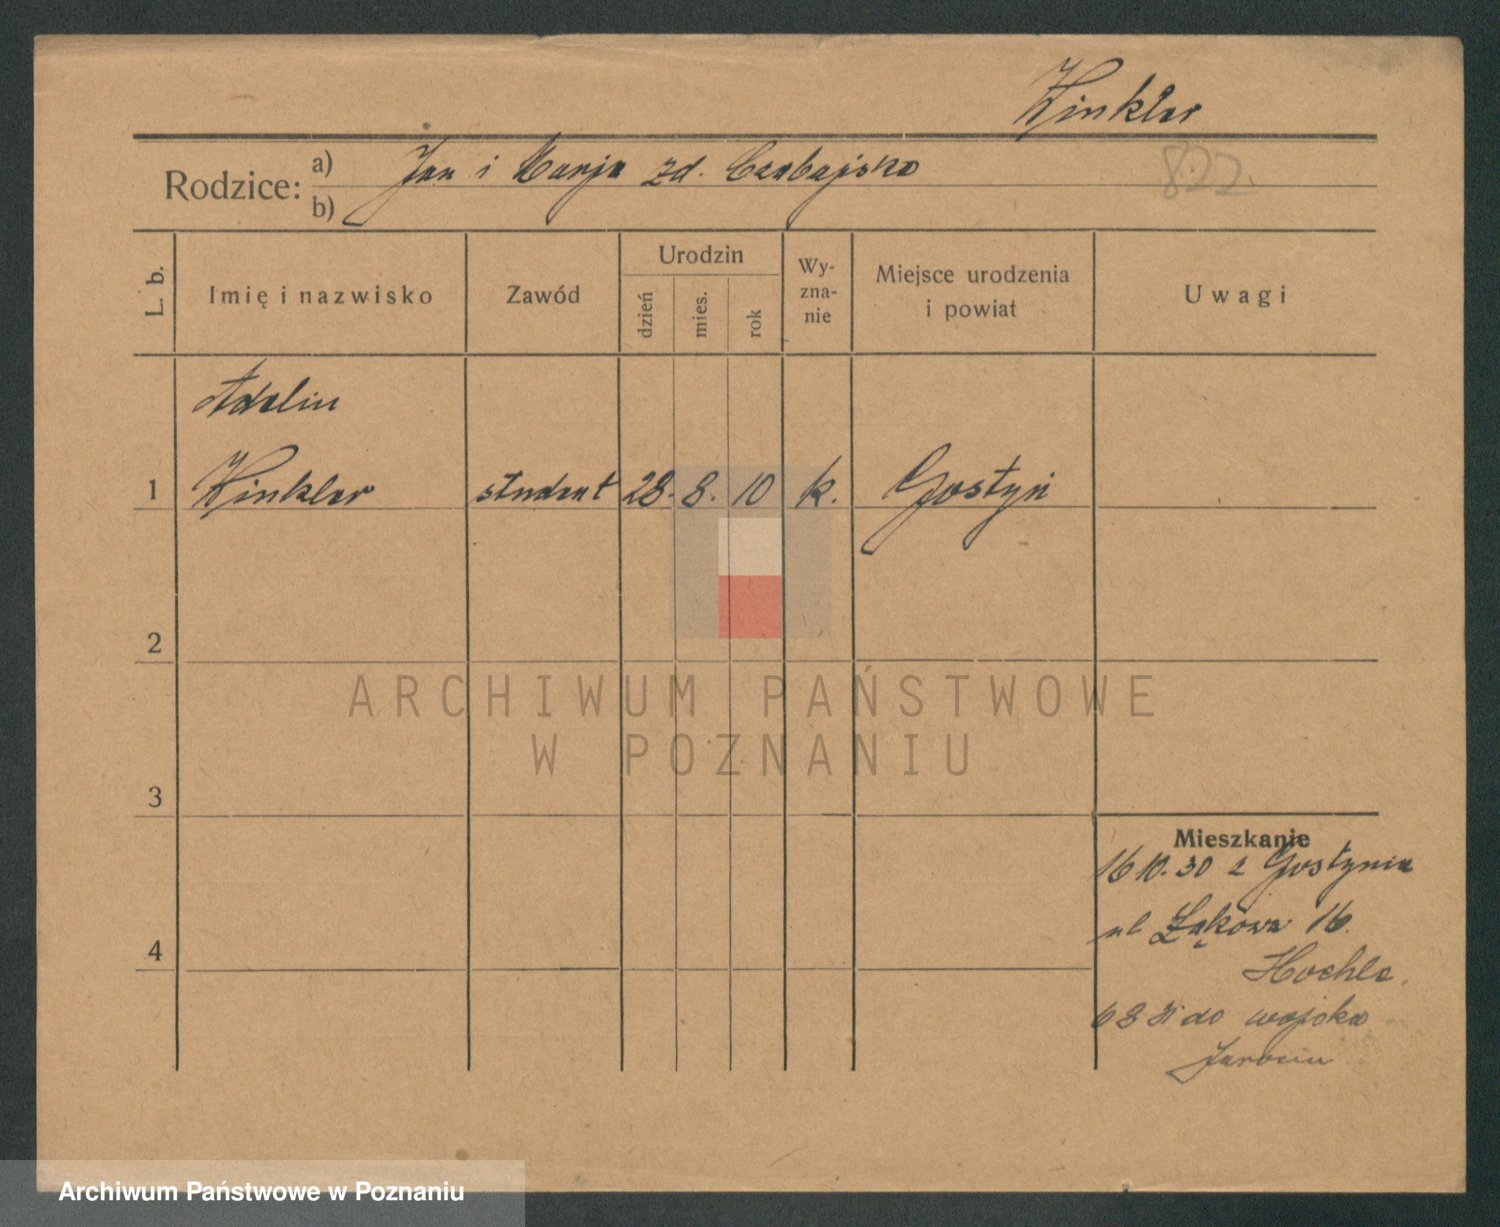 Winkler
Rodzice: a) Jan i Marja zd. Czabajska
b)
822.
L. b.
Imię i nazwisko
Zawód
Urodzin
dzień
mies.
rok
Wy-
zna-
nie
Miejsce urodzenia
i powiat
Uwagi
Adelin
1 Winkler student 28. 8. 10 k. Gostyń
2
3
4
Mieszkanie
16 10. 30 z Gostynia
ul Łąkowa 16.
Hoehle.
6 8 31 do wojska
Jarocin
ARCHIWUM PAŃSTWOWE
W POZNANIU
Archiwum Państwowe w Poznaniu